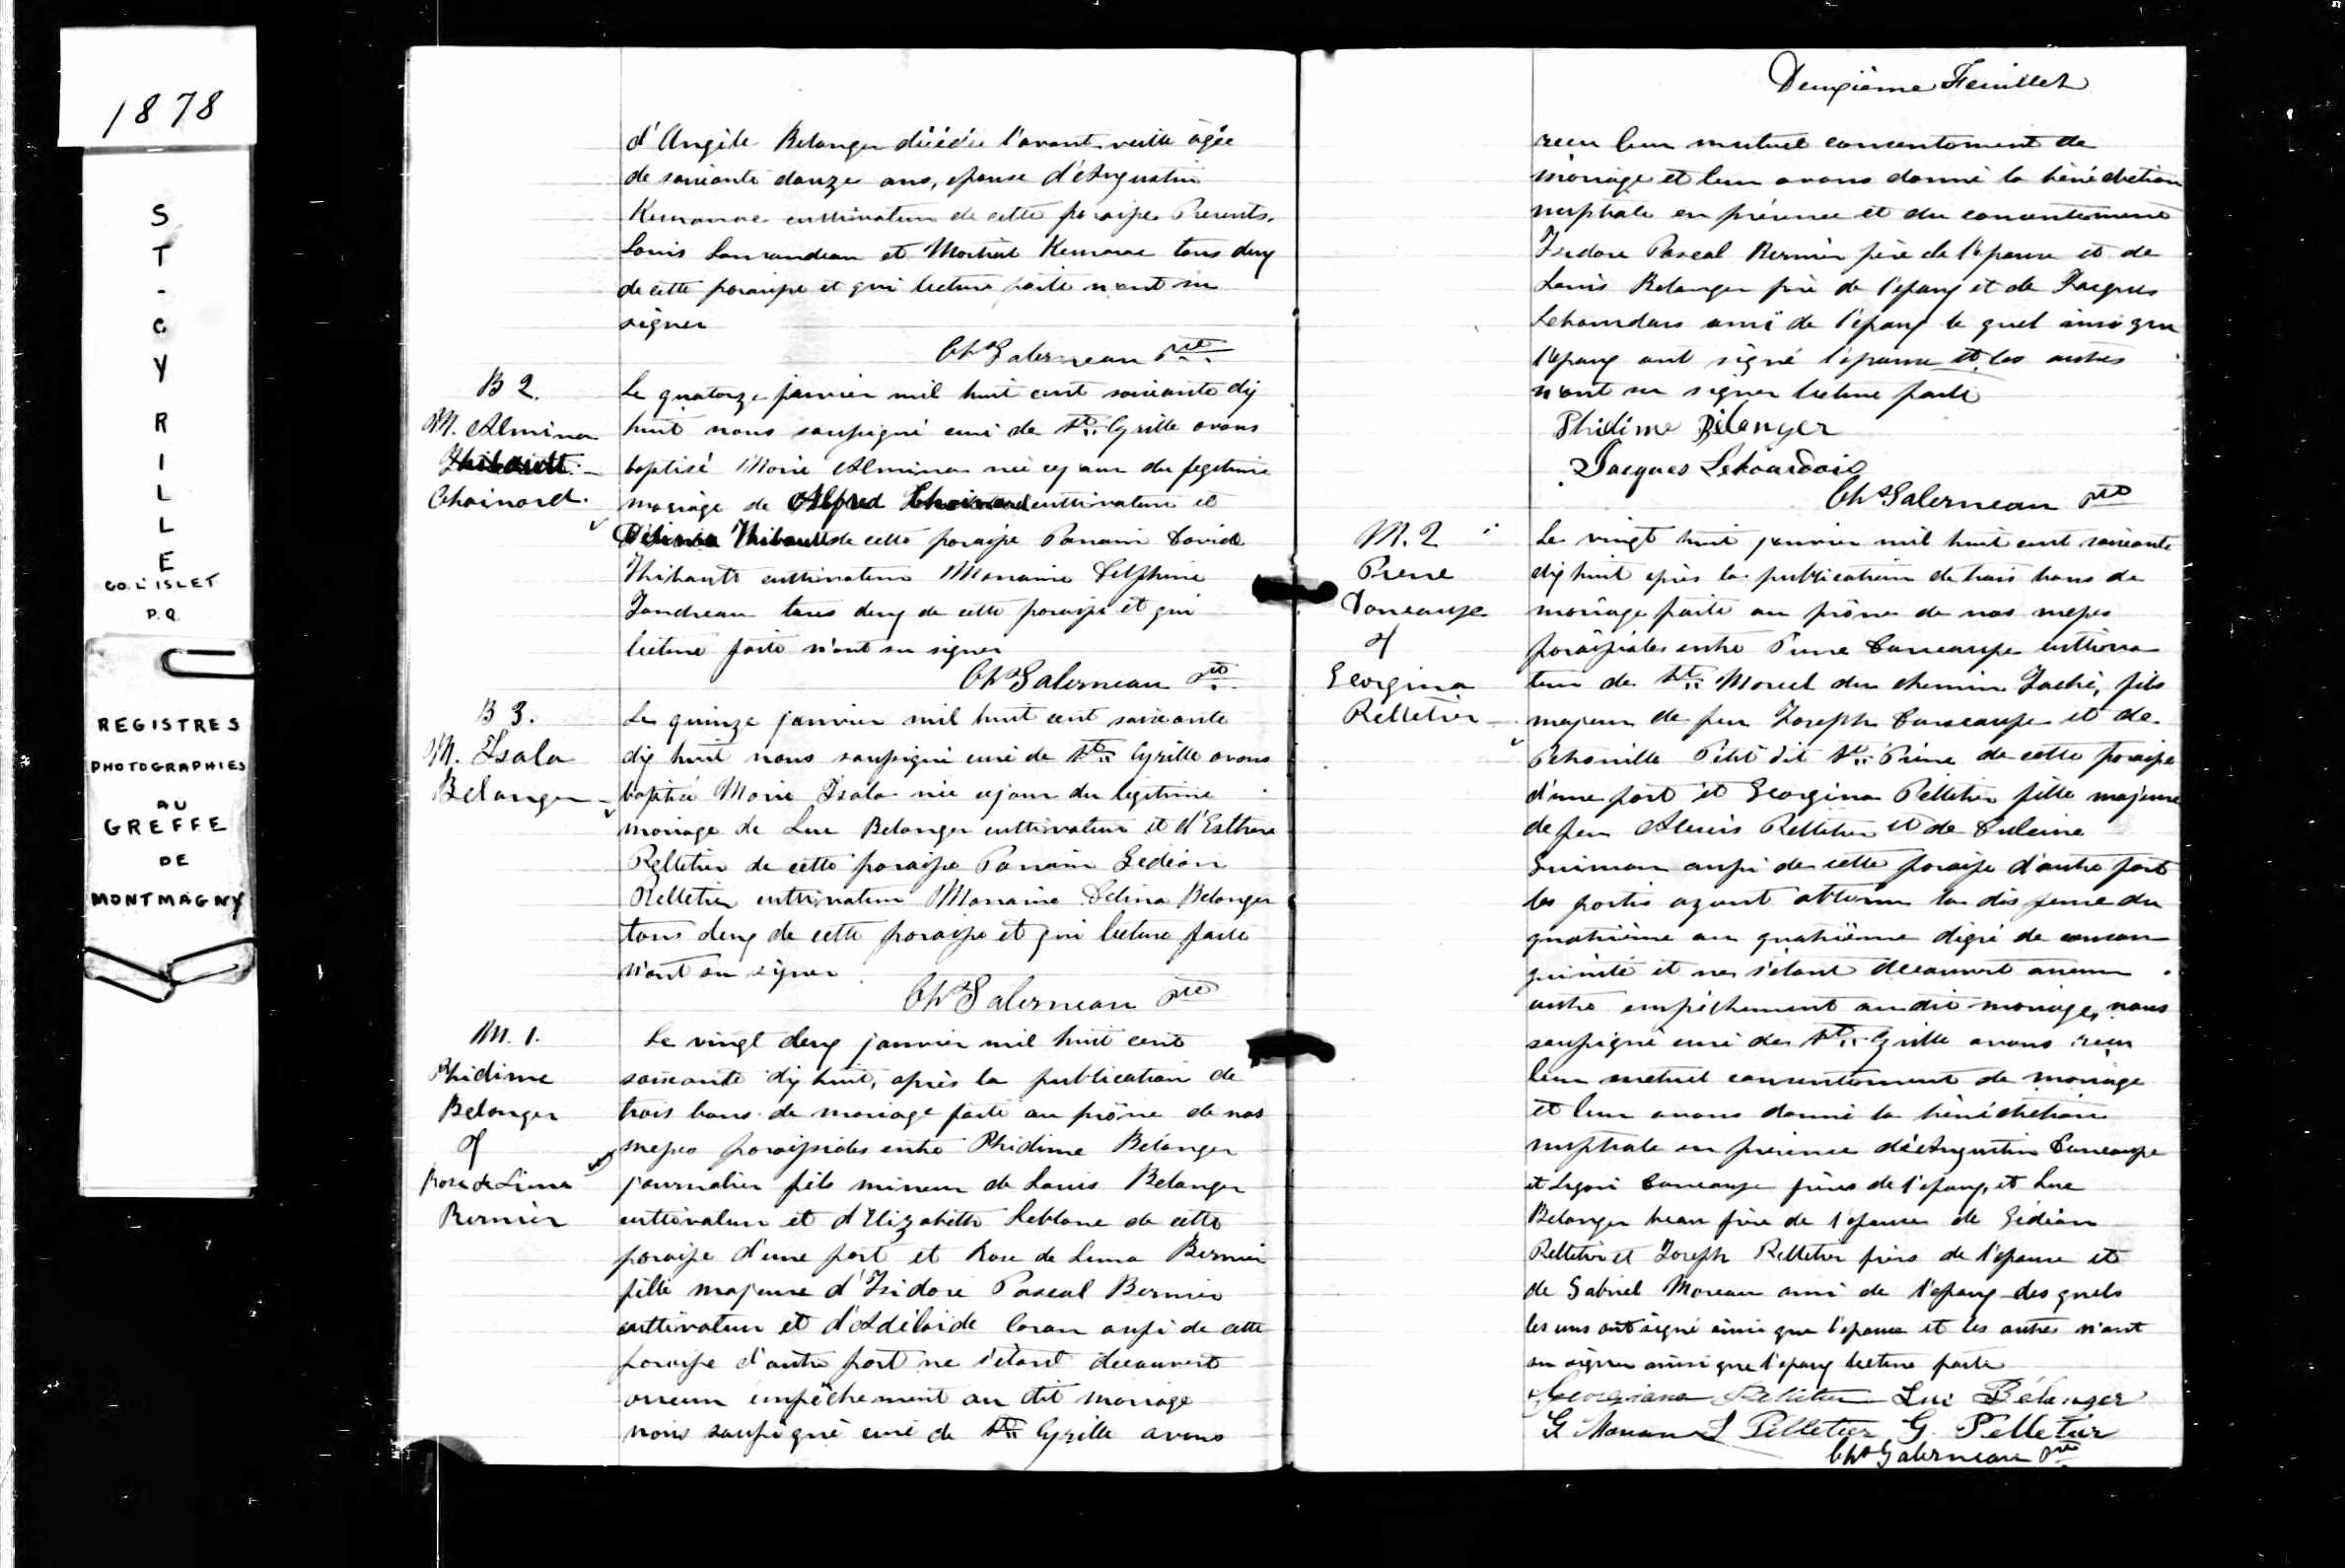 1878
S
T
-
C
Y
R
I
L
L
E
CO. L'ISLET
P.Q.
REGISTRES
PHOTOGRAPHIES
AU
GREFFE
DE
MONTMAGNY
d'Angèle Belanger décédée l'avant veille âgée
de soixante douze ans, épouse d'Augustin
Kemarac cultivateur de cette paroisse Presents,
Louis Laurendeau et Martial Kemarac tous deux
de cette paroisse et qui lecture faite n'ont su
signer
Chs Galerneau Ptre
B 2.
M. Almina
Thibault
Chainard.
Le quatorze janvier mil huit cent soixante dix
huit nous soussigné curé de St. Cyrille avons
baptisé Marie Almina née ce jour du legitime
mariage de Alfred Choinard cultivateur et
Thibault de cette paroisse Parrain David
Thibault cultivateur Marraine Delphine
Jandreau tous deux de cette paroisse et qui
lecture faite n'ont su signer
Chs Galerneau Ptre
B 3.
M. Isala
Belanger
Le quinze janvier mil huit cent soixante
dix huit nous soussigné curé de St. Cyrille avons
baptisé Marie Isala née ce jour du legitime
mariage de Luc Belanger cultivateur et d'Esther
Pelletier de cette paroisse Parrain Gedéon
Pelletier cultivateur Marraine Selina Belanger
tous deux de cette paroisse et qui lecture faite
n'ont su signer
Chs Galerneau Ptre
M. 1.
Phidime
Belanger
&
Rose de Lima
Bernier
Le vingt deux janvier mil huit cent
soixante dix huit, après la publication de
trois bans de mariage faite au prône de nos
messes paroissiales entre Phidime Bélanger
journalier fils mineur de Louis Belanger
cultivateur et d'Elizabeth Leblanc de cette
paroisse d'une part et Rose de Lima Bernier
fille majeure d'Isidore Pascal Bernier
cultivateur et d'Adélaide Caron aussi de cette
paroisse d'autre part ne s'étant decouvert
aucun empêchement au dit mariage
nous soussigné curé de St. Cyrille avons
Deuxième Feuillet
reçu leur mutuel consentement de
mariage et leur avons donné la bénédiction
nuptiale en présence et du consentement
Isidore Pascal Bernier père de l'épouse et de
Louis Belanger père de l'époux et de Jacques
Letourdais ami de l'époux le quel ainsi que
l'époux ont signé l'épouse et les autres
n'ont su signer lecture faite
Phidime Bélanger
Jacques Letourdois
Chs Galerneau Ptre
M. 2
Pierre
Cancaupe
&
Georgina
Pelletier
Le vingt huit janvier mil huit cent soixante
dix huit après la publication de trois bans de
mariage faite au prône de nos messes
paroissiales entre Pierre Cancaupe cultiva
teur de St. Marcel du chemin Taché, fils
majeur de feu Joseph Cancaupe et de
Petit dit St. Pierre de cette paroisse
d'une part et Georgina Pelletier fille majeure
de feu Alexis Pelletier et de
Guimon aussi de cette paroisse d'autre part
les partis ayant obtenu la dispense du
quatrième au quatrième dégré de consan
guinité et ne s'étant decouvert aucun
autre empêchement au dit mariage, nous
soussigné curé de St. Cyrille avons reçu
leur mutuel consentement de mariage
et leur avons donné la bénédiction
nuptiale en présence d'Augustin Cancaupe
et Ligori Cancaupe frères de l'époux, et Luc
Belanger beau frère de l'épouse de Gédéon
Pelletier et Joseph Pelletier frères de l'épouse et
de Gabriel Moreau ami de l'époux des quels
les uns ont signé ainsi que l'épouse et les autres n'ont
su signer ainsi que l'époux lecture faite
Georgiana Pelletier Luc Bélanger
G Moreau J Pelletier G. Pelletier
Chs Galerneau Ptre